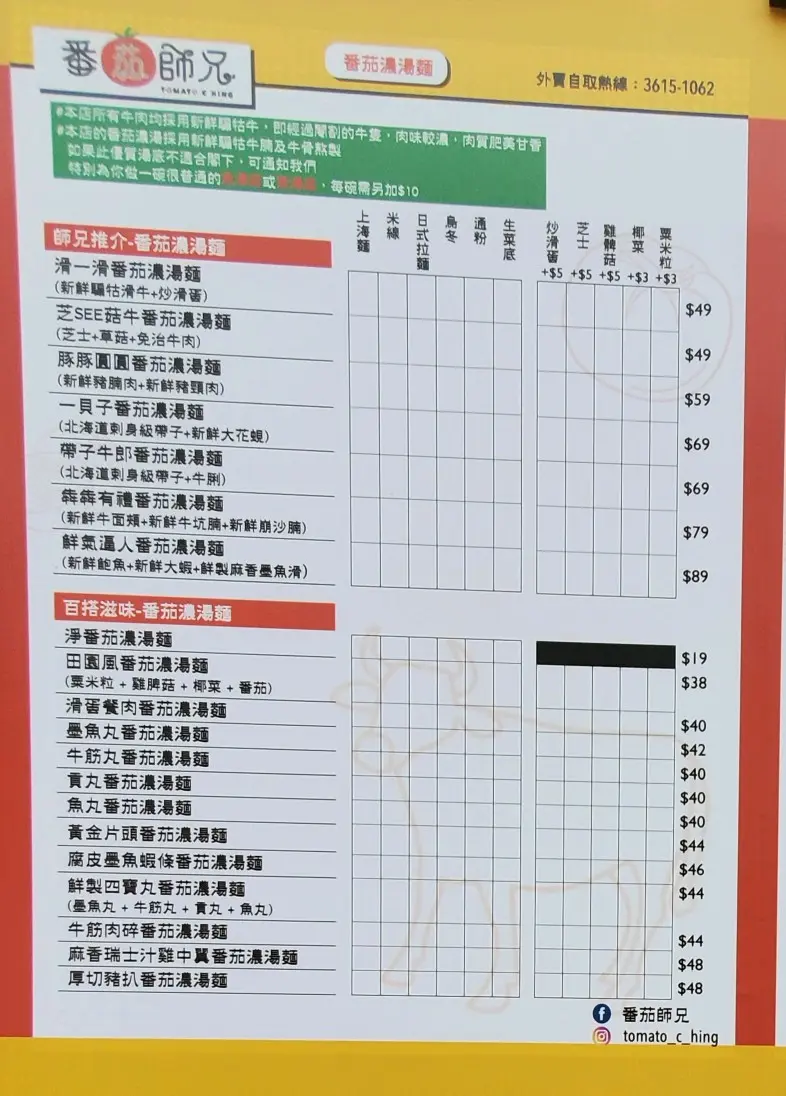 番茄師兄
TOMATO C HING
番茄濃湯麵
外賣自取熱線：3615-1062
*本店所有牛肉均採用新鮮騸牯牛，即經過閹割的牛隻，肉味較濃，肉質肥美甘香
*本店的番茄濃湯採用新鮮騸牯牛腩及牛骨熬製
如果此優質湯底不適合閣下，可通知我們
特別為你做一碗很普通的 或 ，每碗需另加$10
上海麵 米線 日式拉麵 烏冬 通粉 生菜底 炒滑蛋+$5 芝士+$5 雞髀菇+$5 椰菜+$3 粟米粒+$3
師兄推介-番茄濃湯麵
滑一滑番茄濃湯麵 $49
(新鮮騸牯滑牛+炒滑蛋)
芝SEE菇牛番茄濃湯麵 $49
(芝士+草菇+免治牛肉)
豚豚圓圓番茄濃湯麵 $59
(新鮮豬腩肉+新鮮豬頸肉)
一貝子番茄濃湯麵 $69
(北海道刺身級帶子+新鮮大花蜆)
帶子牛郎番茄濃湯麵 $69
(北海道刺身級帶子+牛脷)
犇犇有禮番茄濃湯麵 $79
(新鮮牛面頰+新鮮牛坑腩+新鮮崩沙腩)
鮮氣逼人番茄濃湯麵 $89
(新鮮鮑魚+新鮮大蝦+鮮製麻香墨魚滑)
百搭滋味-番茄濃湯麵
淨番茄濃湯麵 $19
田園風番茄濃湯麵 $38
(粟米粒 + 雞脾菇 + 椰菜 + 番茄)
滑蛋餐肉番茄濃湯麵 $40
墨魚丸番茄濃湯麵 $42
牛筋丸番茄濃湯麵 $40
貢丸番茄濃湯麵 $40
魚丸番茄濃湯麵 $40
黃金片頭番茄濃湯麵 $44
腐皮墨魚蝦條番茄濃湯麵 $46
鮮製四寶丸番茄濃湯麵 $44
(墨魚丸 + 牛筋丸 + 貢丸 + 魚丸)
牛筋肉碎番茄濃湯麵 $44
麻香瑞士汁雞中翼番茄濃湯麵 $48
厚切豬扒番茄濃湯麵 $48
番茄師兄
tomato_c_hing